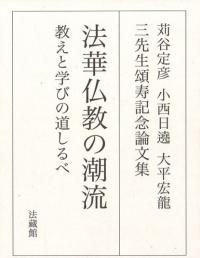 苅谷定彦 小西日遶 大平宏龍
三先生頌寿記念論文集
法華仏教の潮流
教えと学びの道しるべ
法藏館